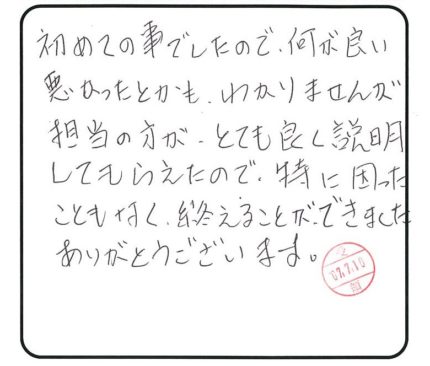 初めての事でしたので、何が良い
悪かったとかも、わかりませんが
担当の方が、とても良く説明
してもらえたので、特に困った
こともなく、終えることが、できました
ありがとうございます。
07.7.10